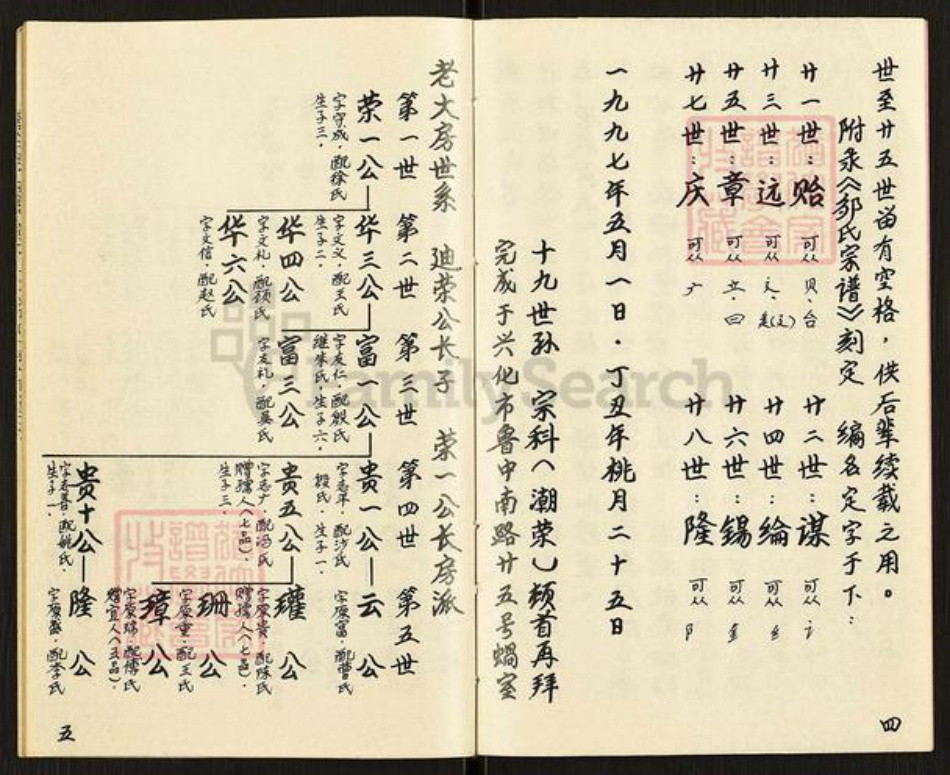 世至廿五世留有空格，供后辈续载之用。
附录《邹氏宗谱》刻定 编名定字于下：
廿一世：贻 可从 贝、台 廿二世：谋 可从 讠
廿三世：远 可从 辶 廿四世：纶 可从 纟
廿五世：章 可从 立、曰 廿六世：锡 可从 金
廿七世：庆 可从 广 廿八世：隆 可从 阝
一九九七年五月一日·丁丑年桃月二十五日
十九世孙 宗科（潮荣）顿首再拜
完成于兴化市鲁中南路廿五号蜗室
四
老大房世系 迪荣公长子 荣一公长房派
第一世 第二世 第三世 第四世 第五世
荣一公 华三公 富一公 贵一公 云公
字宗成，配徐氏
生子三。
字文义，配王氏
生子二。
字友仁，配殷氏
继朱氏，生子六。
字志平，配沙氏
殷氏，生子一。
字原富，配曹氏
华四公 富三公 贵五公 瓘公
字文礼，配顾氏
字友礼，配吴氏
字志广，配冯氏
赠孺人（七品），
生子三。
字原贵，配陈氏
赠孺人（七品），
华六公 珊公
字文信 配赵氏
字原重，配王氏
璋公
字原瑞，配傅氏
赠宜人（五品）。
贵十公 隆公
字志善，配姚氏，
生子一。
字原盛，配李氏
五
FamilySearch